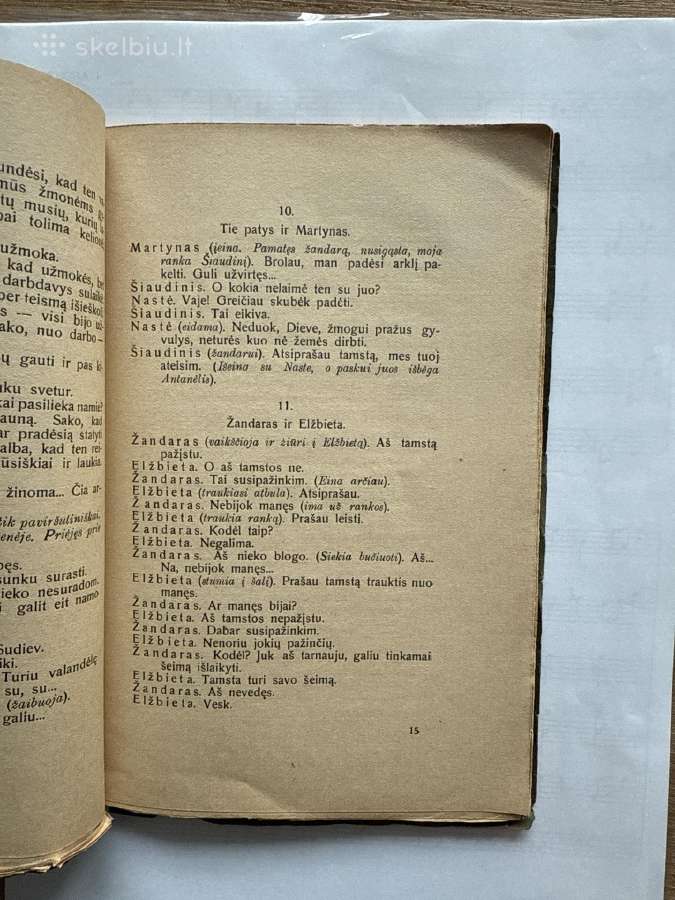 skelbiu.lt
undėsi, kad ten
žmonėms
tų musių, kurių
tolima
užmoka.
kad užmokės,
darbdavys
per teismą
s — visi bijo
ako, nuo darbo-
gauti ir pas
ku svetur.
kai pasilieka namie?
auną. Sako, kad
ar pradėsią statyti
alba, kad ten
ūsiškiai ir laukia
žinoma... Čia ar-
paviršutiniškai.
Priėjęs prie
sunku surasti.
ieko nesuradom.
galit eit namo
Sudiev.
Turiu valandėlę
su, su...
(žaibuoja).
galiu...
10.
Tie patys ir Martynas.
Martynas (įeina. Pamatęs žandarą, nusigąsta, moja
ranka Šiaudinį). Brolau, man padėsi arklį pa-
kelti. Guli užvirtęs...
Šiaudinis. O kokia nelaimė ten su juo?
Nastė. Vaje! Greičiau skubėk padėti.
Šiaudinis. Tai eikiva.
Nastė (eidama). Neduok, Dieve, žmogui pražus gy-
vulys, neturės kuo nė žemės dirbti.
Šiaudinis (žandarui). Atsiprašau tamstą, mes tuoj
ateisim. (Išeina su Naste, o paskui juos išbėga
Antanėlis).
11.
Žandaras ir Elžbieta.
Žandaras (vaikščioja ir žiūri į Elžbietą). Aš tamstą
pažįstu.
Elžbieta. O aš tamstos ne.
Žandaras. Tai susipažinkim. (Eina arčiau).
Elžbieta (traukiasi atbula). Atsiprašau.
Žandaras. Nebijok manęs (ima už rankos).
Elžbieta (traukia ranką). Prašau leisti.
Žandaras. Kodėl taip?
Elžbieta. Negalima.
Žandaras. Aš nieko blogo. (Siekia bučiuoti). Aš...
Na, nebijok manęs...
Elžbieta (stumia į šalį). Prašau tamstą trauktis nuo
manęs.
Žandaras. Ar manęs bijai?
Elžbieta. Aš tamstos nepažįstu.
Žandaras. Dabar susipažinkim.
Elžbieta. Nenoriu jokių pažinčių.
Žandaras. Kodėl? Juk aš tarnauju, galiu tinkamai
šeimą išlaikyti.
Elžbieta. Tamsta turi savo šeimą.
Žandaras. Aš nevedęs.
Elžbieta. Vesk.
15